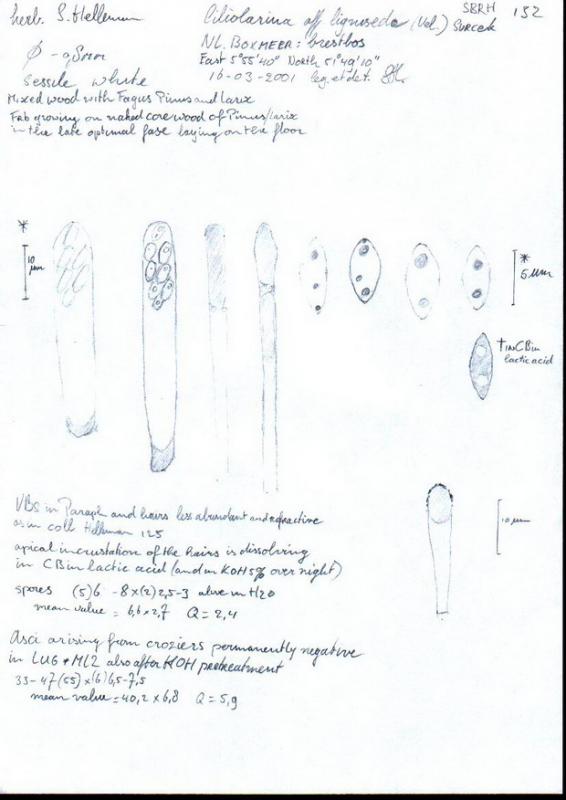 herb. S. Helleman
Ciliolarina aff ligniseda (Vel.) Svrcek
SBRH 152
NL. Boxmeer: brestbos
East 5°55'40" North 51°49'10"
16-03-2001 leg. et det. SH
Ø -0,8mm
sessile white
Mixed wood with Fagus Pinus and Larix
Fab growing on naked corewood of Pinus/Larix
in the late optimal fase laying on the floor
*
10 µm
*
5 µm
† in CB in
lactic acid
10 µm
VBS in Paraph and hairs less abundant and refractive
as in coll Helleman 125
apical incrustation of the hairs is dissolving
in CB in lactic acid (and in KOH 5% over night)
spores (5)6 -8x(2)2,5-3 alive in H2O
mean value = 6,6x2,7 Q=2,4
Asci arising from croziers permanently negative
in LUG + MLZ also after KOH pretreatment
33-47(55)x(6)6,5-7,5
mean value = 40,2 x 6,8 Q=5,9